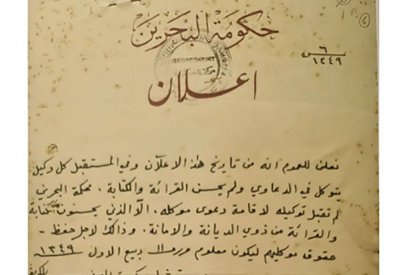 حكومة البحرين
نمرة ٦
١٣٤٩
SECRETARIAT
اعلان
نعلن للعموم انه من تاريخ هذا الاعلان وفي المستقبل كل وكيل
يتوكل في الدعاوي ولم يحسن القرائة والكتابة، محكمة البحرين
لم تقبل توكيله لاقامة دعوى موكله، الا الذين يحسنون كتابة
والقرائة من ذوي الديانة والامانة، وذالك لاجل حفظ
حقوق موكليهم ليكون معلوم حرر ١١ ربيع الاول ١٣٤٩